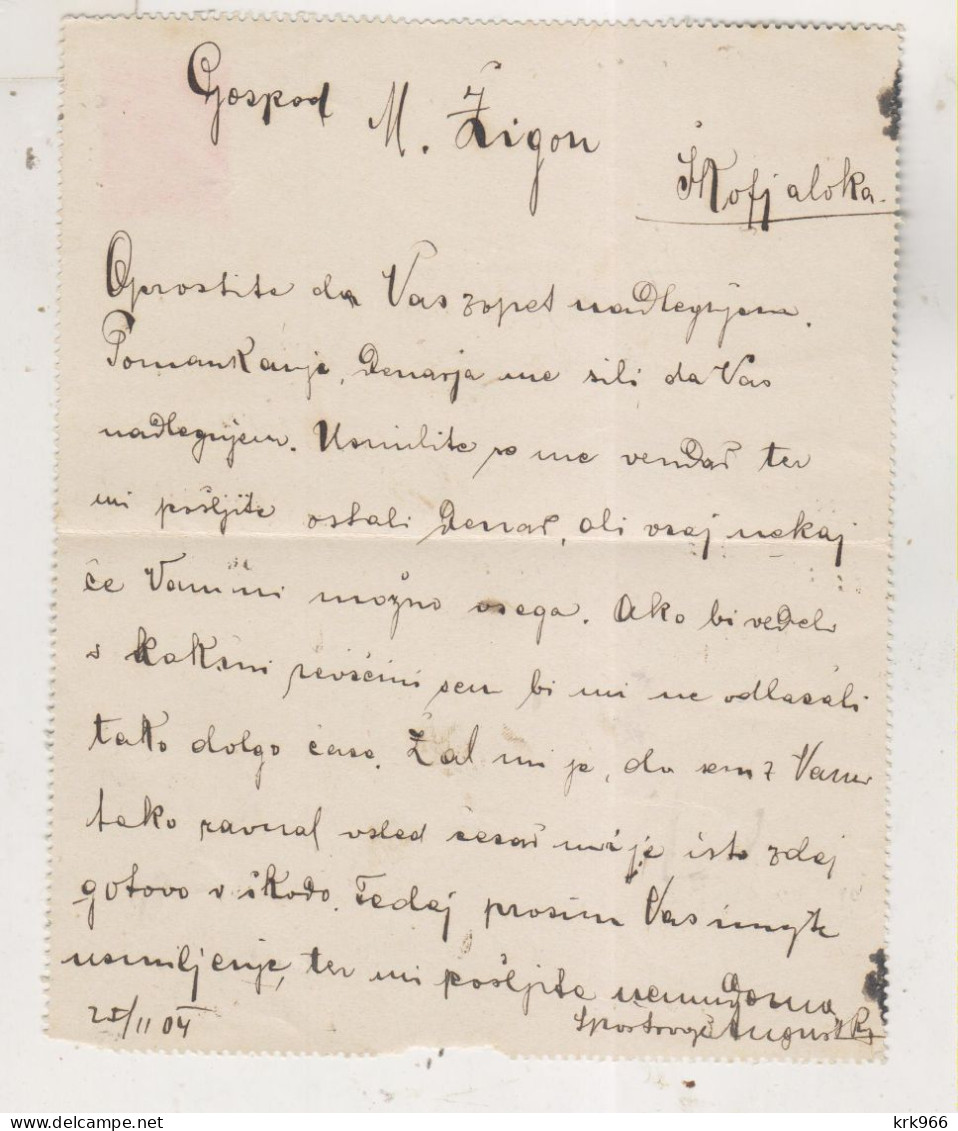 Gospod
M. Žigon
Škofjaloka.
Oprostite da Vas zopet nadlegujem.
Pomankanje, denarja me sili da Vas
nadlegujem. Usmilite se me vendar ter
mi pošljite ostali denar, ali vsaj nekaj
če Vam ni možno vsega. Ako bi vedeli
v kakšni revščini sem bi mi ne odlašali
tako dolgo časa. Žal mi je, da sem z Vami
tako ravnal vsled česar mi je isto zdaj
gotovo v škodo. Tedaj prosim Vas imejte
usmiljenje, ter mi pošljite nemudoma
25/II 04 Spoštovanje August
krk966